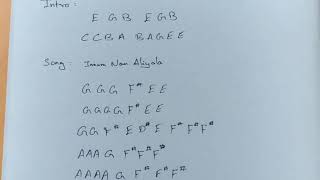 Intro:
E G B E G B
C C B A B A G E E
Song: Innum Nan Aliyala
G G G F# E E
G G G G F# E E
G G F# E D# E F# F# F#
A A A G F# F# F#
A A A A G F# F# F#